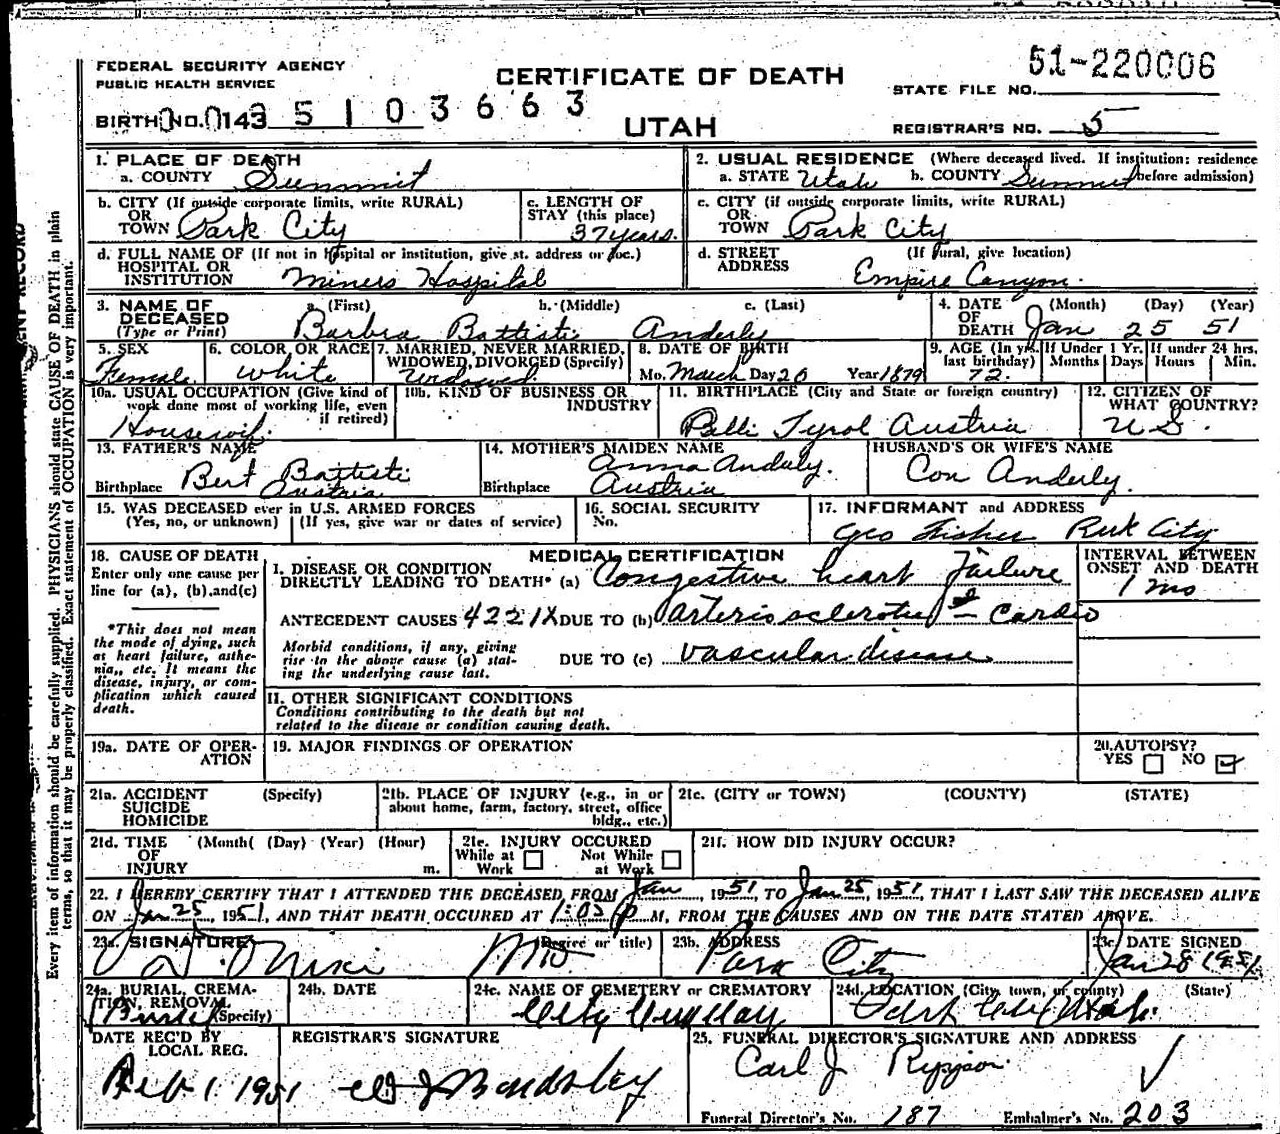 51-220006
FEDERAL SECURITY AGENCY
PUBLIC HEALTH SERVICE
CERTIFICATE OF DEATH
STATE FILE NO.
BIRTH NO. 0143 5 1 0 3 6 6 3
UTAH
REGISTRAR'S NO. 5
Every item of information should be carefully supplied. PHYSICIANS should state CAUSE OF DEATH in plain
terms, so that it may be properly classified. Exact statement of OCCUPATION is very important.
1. PLACE OF DEATH
a. COUNTY Summit
2. USUAL RESIDENCE (Where deceased lived. If institution: residence
a. STATE Utah b. COUNTY Summit before admission)
b. CITY (If outside corporate limits, write RURAL)
OR
TOWN Park City
c. LENGTH OF
STAY (this place)
37 years.
c. CITY (if outside corporate limits, write RURAL)
OR
TOWN Park City
d. FULL NAME OF (If not in Hospital or institution, give st. address or loc.)
HOSPITAL OR
INSTITUTION Miners Hospital
d. STREET (If rural, give location)
ADDRESS Empire Canyon.
3. NAME OF a. (First) b. (Middle) c. (Last)
DECEASED
(Type or Print) Barbra Battisti Anderly
4. DATE (Month) (Day) (Year)
OF
DEATH Jan 25 51
5. SEX
Female.
6. COLOR OR RACE
White
7. MARRIED, NEVER MARRIED,
WIDOWED, DIVORGED (Specify)
Widowed.
8. DATE OF BIRTH
Mo. March Day 20 Year 1879
9. AGE (In yrs.
last birthday)
72.
If Under 1 Yr.
Months Days
If under 24 hrs,
Hours Min.
10a. USUAL OCCUPATION (Give kind of
work done most of working life, even
if retired)
Housewife.
10b. KIND OF BUSINESS OR
INDUSTRY
11. BIRTHPLACE (City and State or foreign country)
Pelli Tyrol Austria
12. CITIZEN OF
WHAT COUNTRY?
U S.
13. FATHER'S NAME
Bert Battisti
Birthplace Austria
14. MOTHER'S MAIDEN NAME
Anna Anduly.
Birthplace Austria
HUSBAND'S OR WIFE'S NAME
Con Anderly.
15. WAS DECEASED ever in U.S. ARMED FORCES
(Yes, no, or unknown) (If yes, give war or dates of service)
16. SOCIAL SECURITY
No.
17. INFORMANT and ADDRESS
Geo Fisher Park City
18. CAUSE OF DEATH
Enter only one cause per
line for (a), (b), and (c)
*This does not mean
the mode of dying, such
as heart failure, asthe-
nia,, etc. It means the
disease, injury, or com-
plication which caused
death.
MEDICAL CERTIFICATION
I. DISEASE OR CONDITION
DIRECTLY LEADING TO DEATH* (a) Congestive heart Failure
ANTECEDENT CAUSES 4221X DUE TO (b) arteriosclerotic Cardio
Morbid conditions, if any, giving
rise to the above cause (a) stat-
ing the underlying cause last.
DUE TO (c) vascular disease
INTERVAL BETWEEN
ONSET AND DEATH
1 mo
II. OTHER SIGNIFICANT CONDITIONS
Conditions contributing to the death but not
related to the disease or condition causing death.
19a. DATE OF OPER-
ATION
19. MAJOR FINDINGS OF OPERATION
20. AUTOPSY?
YES NO
21a. ACCIDENT (Specify)
SUICIDE
HOMICIDE
21b. PLACE OF INJURY (e.g., in or
about home, farm, factory, street, office
bldg., etc.)
21c. (CITY or TOWN) (COUNTY) (STATE)
21d. TIME (Month( (Day) (Year) (Hour)
OF
INJURY m.
21e. INJURY OCCURED
While at Not While
Work at Work
21f. HOW DID INJURY OCCUR?
22. I HEREBY CERTIFY THAT I ATTENDED THE DECEASED FROM Jan, 1951, TO Jan 25, 1951, THAT I LAST SAW THE DECEASED ALIVE
ON Jan 25, 1951, AND THAT DEATH OCCURED AT 1:05 P M, FROM THE CAUSES AND ON THE DATE STATED ABOVE.
23a. SIGNATURE (Degree or title)
MD
23b. ADDRESS
Park City
23c. DATE SIGNED
Jan 28 1951
24a. BURIAL, CREMA-
TION, REMOVAL
Burial (Specify)
24b. DATE
24c. NAME OF CEMETERY or CREMATORY
City
24d. LOCATION (City, town, or county) (State)
Park City Utah.
DATE REC'D BY
LOCAL REG.
Feb 1. 1951
REGISTRAR'S SIGNATURE
25. FUNERAL DIRECTOR'S SIGNATURE AND ADDRESS
Carl J
Funeral Director's No. 187 Embalmer's No. 203